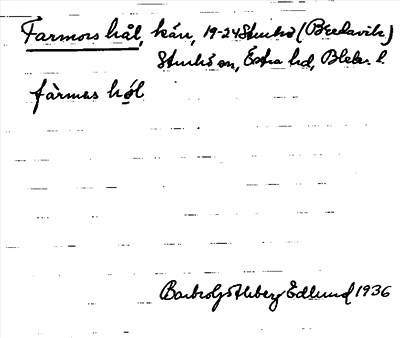 Farmors hål, kän, 19-24 Sturkö (Bredavik)
Sturkö sn, Östra hd, Blek. l
fàrmas hǫl
Barbro Götheberg Edlund 1936